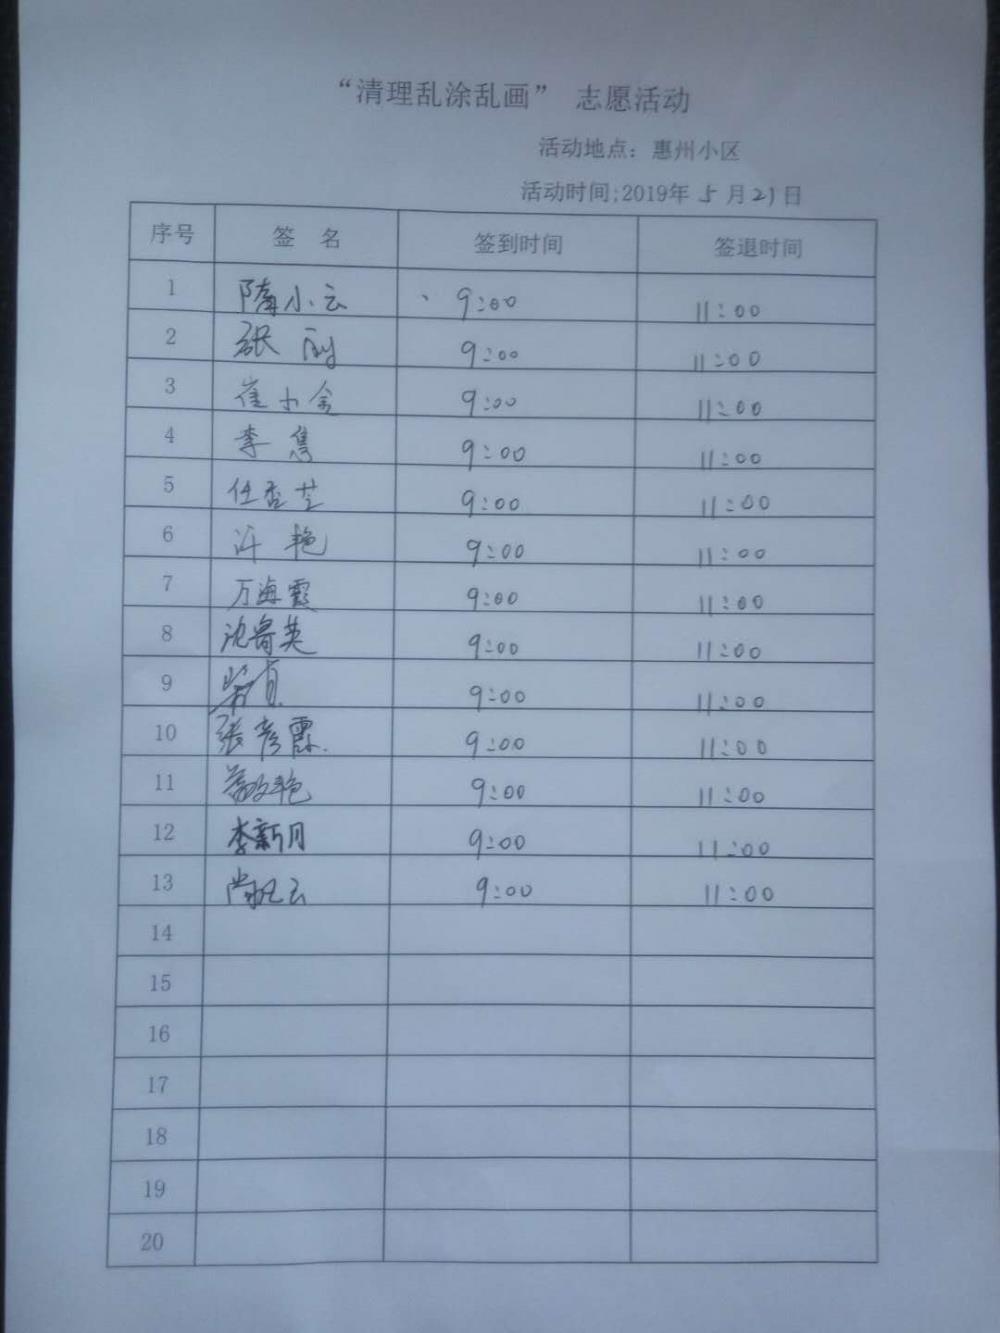 “清理乱涂乱画” 志愿活动
活动地点：惠州小区
活动时间:2019年5月21日
序号 签 名 签到时间 签退时间
1 隋小云 9:00 11:00
2 张 9:00 11:00
3 崔小金 9:00 11:00
4 李隽 9:00 11:00
5 任香芝 9:00 11:00
6 许艳 9:00 11:00
7 万海霞 9:00 11:00
8 沈寄英 9:00 11:00
9 9:00 11:00
10 张彦霖 9:00 11:00
11 9:00 11:00
12 李新月 9:00 11:00
13 尚 云 9:00 11:00
14
15
16
17
18
19
20